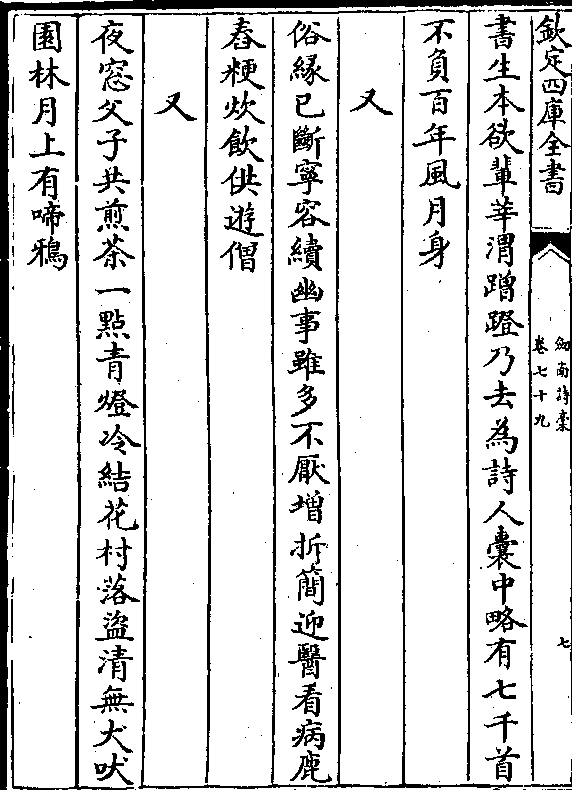 欽定四庫全書
劒南詩稾
卷七十九
七
書生本欲輩莘渭蹭蹬乃去為詩人囊中略有七千首
不負百年風月身
又
俗緣已斷寧容續幽事雖多不厭增折簡迎醫看病鹿
舂粳炊飲供遊僧
又
夜窓父子共煎茶一點青燈冷結花村落盜清無犬吠
園林月上有啼鴉